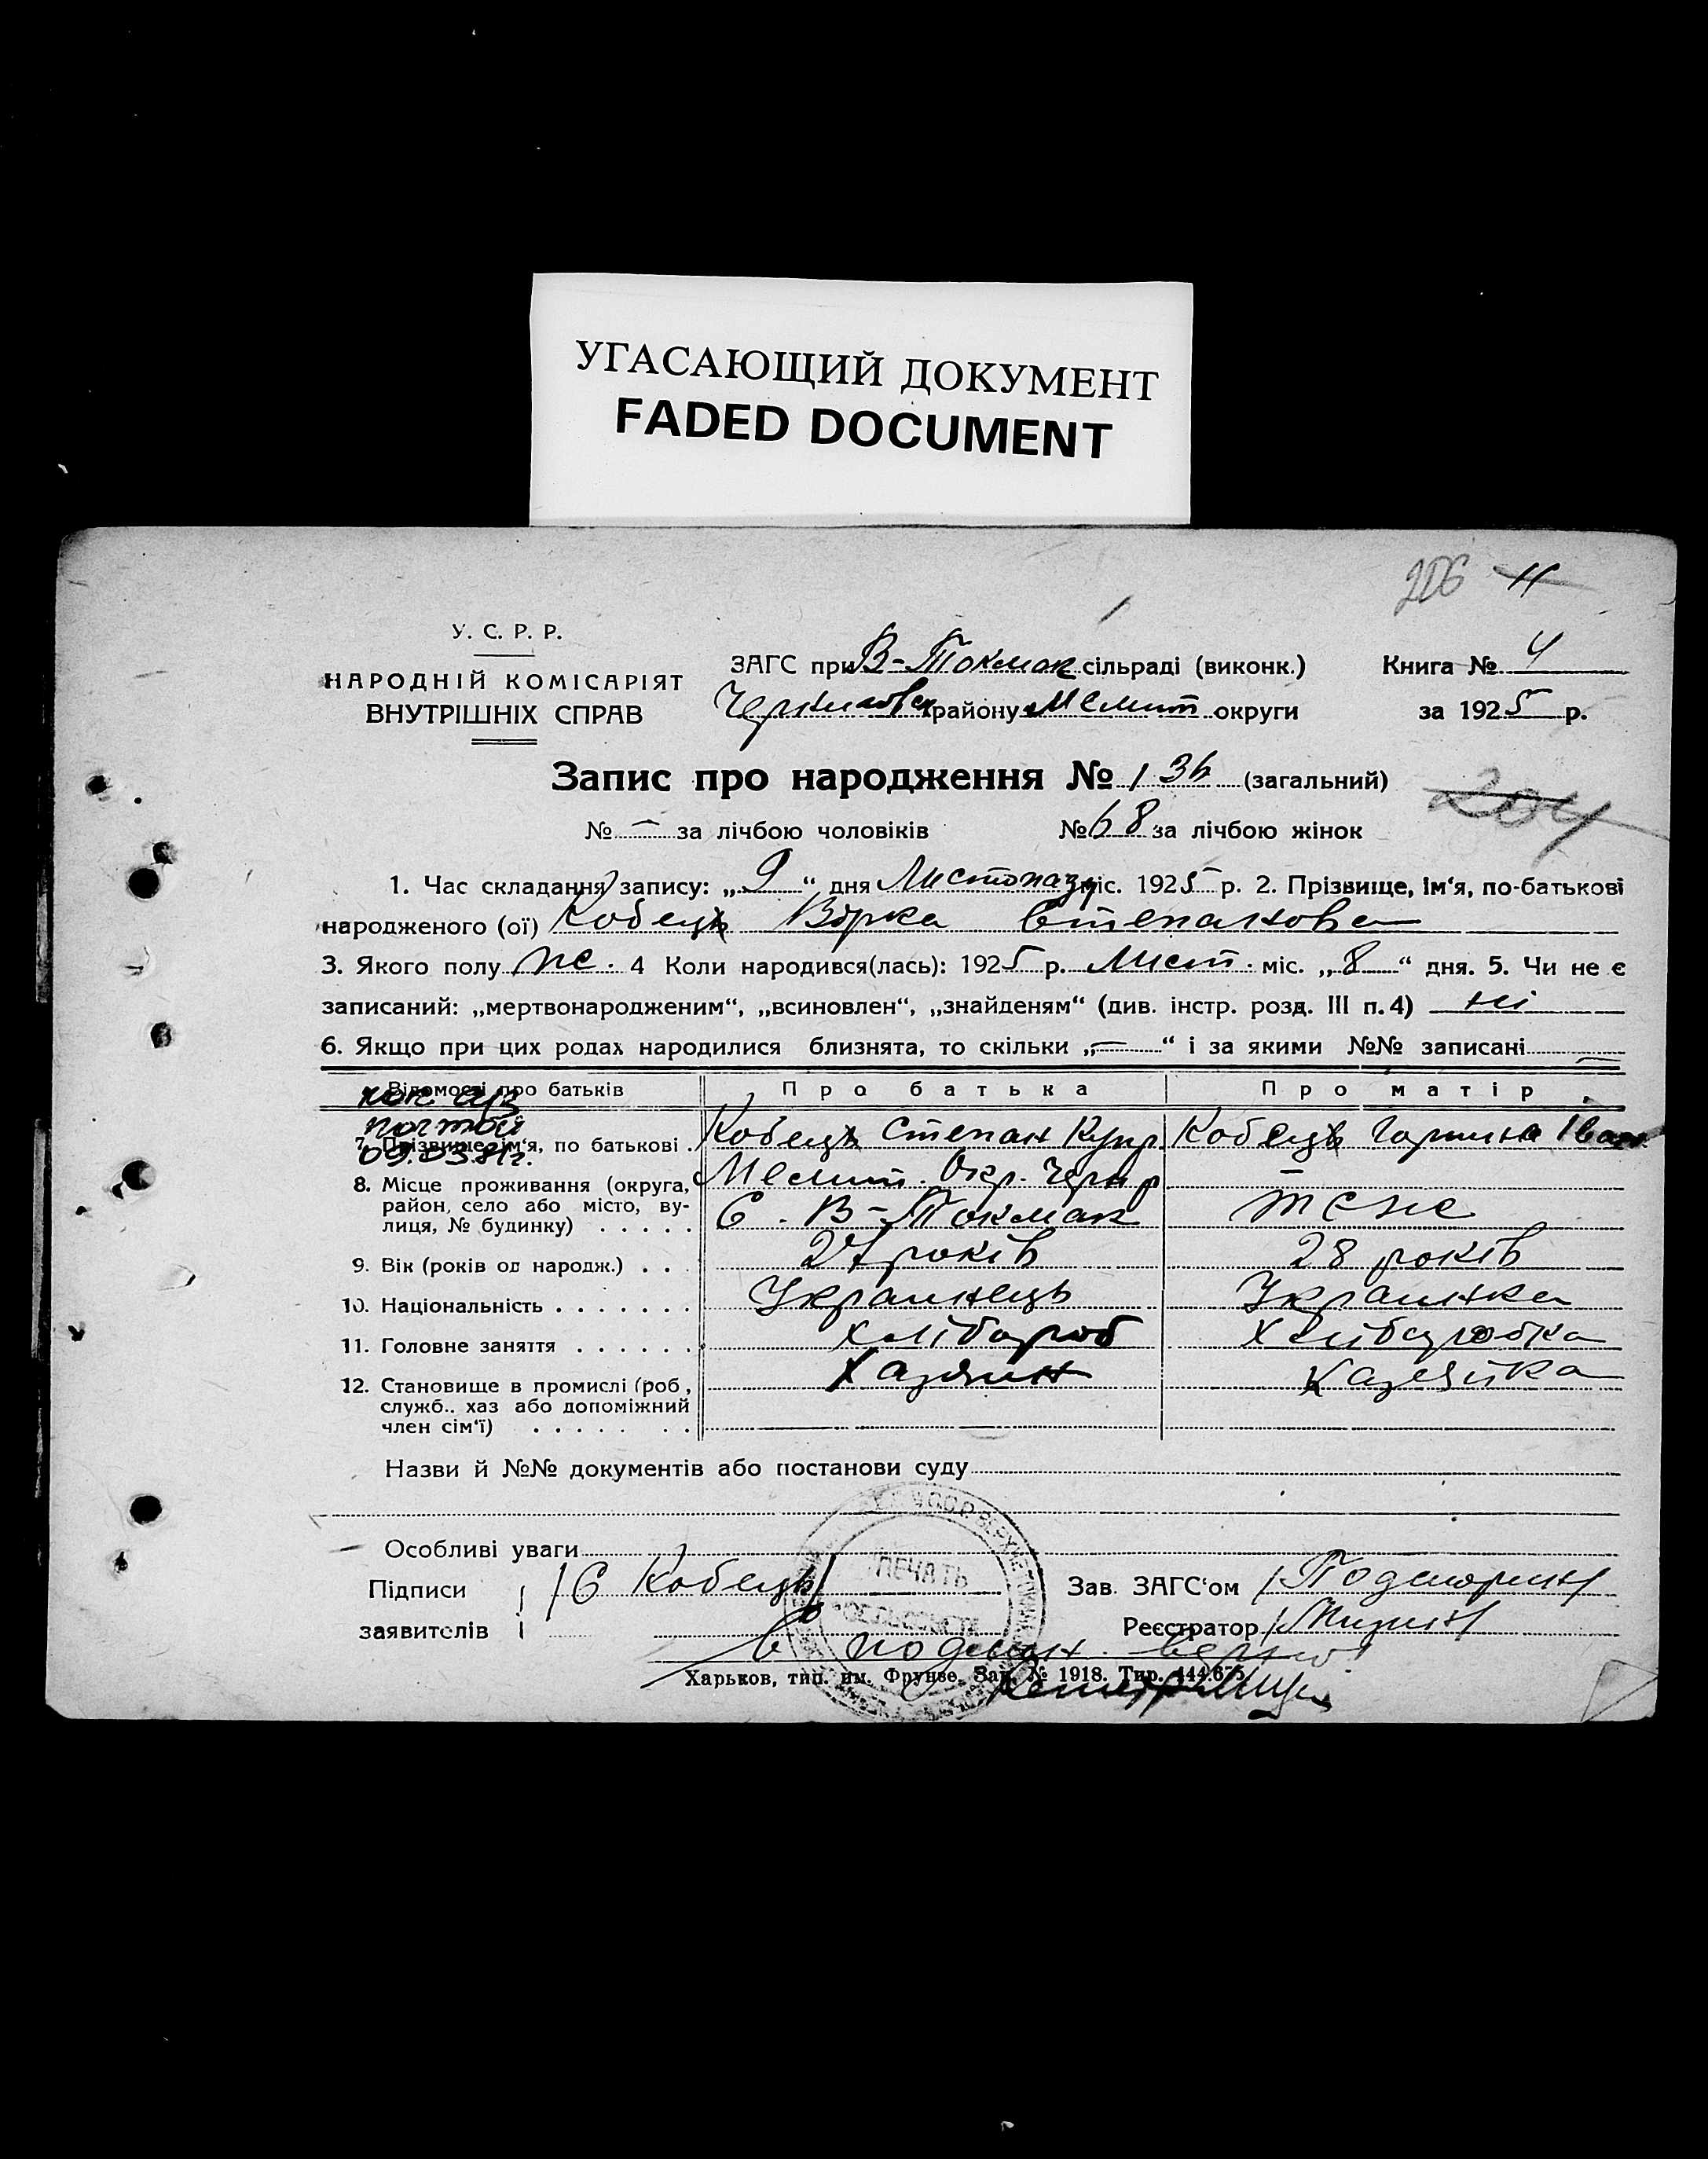 УГАСАЮЩИЙ ДОКУМЕНТ
FADED DOCUMENT
206 11
У. С. Р. Р.
НАРОДНІЙ КОМІСАРІЯТ
ВНУТРІШНІХ СПРАВ
ЗАГС при В-Токмак сільраді (виконк.)
району Мелит округи
Книга № 4
за 1925 р.
Запис про народження № 136 (загальний)
204
№ — за лічбою чоловіків № 68 за лічбою жінок
1. Час складання запису: „9“ дня Листопаду міс. 1925 р. 2. Прізвище, ім‘я, по-батькові
народженого (ої) Кобець Вірка Степанова
3. Якого полу же. 4 Коли народився(лась): 1925 р. Лист. міс. „8“ дня. 5. Чи не є
записаний: „мертвонародженим“, „всиновлен“, „знайденям“ (див. інстр. розд. III п. 4) ні
6. Якщо при цих родах народилися близнята, то скільки „—“ і за якими №№ записані —
Відомості про батьків Про батька Про матір
09.03.81г.
7. Прізвище, ім‘я, по батькові . Кобець Степан Купр Кобець Горпина Іван
8. Місце проживання (округа, район, село або місто, вулиця, № будинку) . . . . .
Мелит. Окр. Черн р —
С. В-Токмак теже
9. Вік (років од народж.) . . . 27 років 28 років
10. Національність . . . . . . . Украинець Украинка
11. Головне заняття . . . . . . Хлібороб Хліборобка
12. Становище в промислі (роб, служб.. хаз або допоміжний член сім‘ї) . . . . . . .
Хазяин Хазяйка
Назви й №№ документів або постанови суду
Особливі уваги
Підписи заявителів
С Кобець
ПЕЧАТЬ
Зав. ЗАГС‘ом
Реєстратор
Харьков, тип. им. Фрунзе. Зак. № 1918. Тир. 444.675.